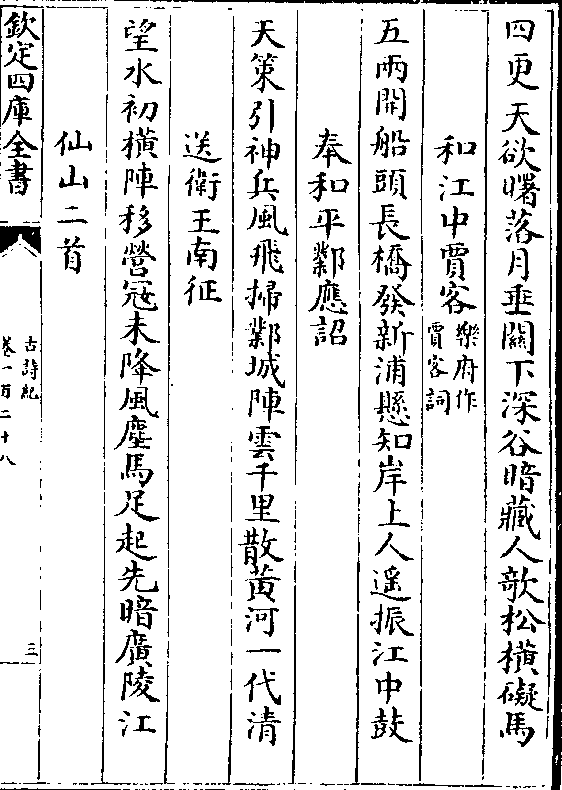 四更天欲曙落月垂關下深谷暗藏人欹松橫礙馬
和江中賈客樂府作
賈客詞
五兩開船頭長橋發新浦懸知岸上人遥振江中鼓
奉和平鄴應詔
天策引神兵風飛掃鄴城陣雲千里散黄河一代清
送衛王南征
望水初橫陣移營冦未降風塵馬足起先暗廣陵江
仙山二首
欽定四庫全書
古詩紀
卷一百二十八
三